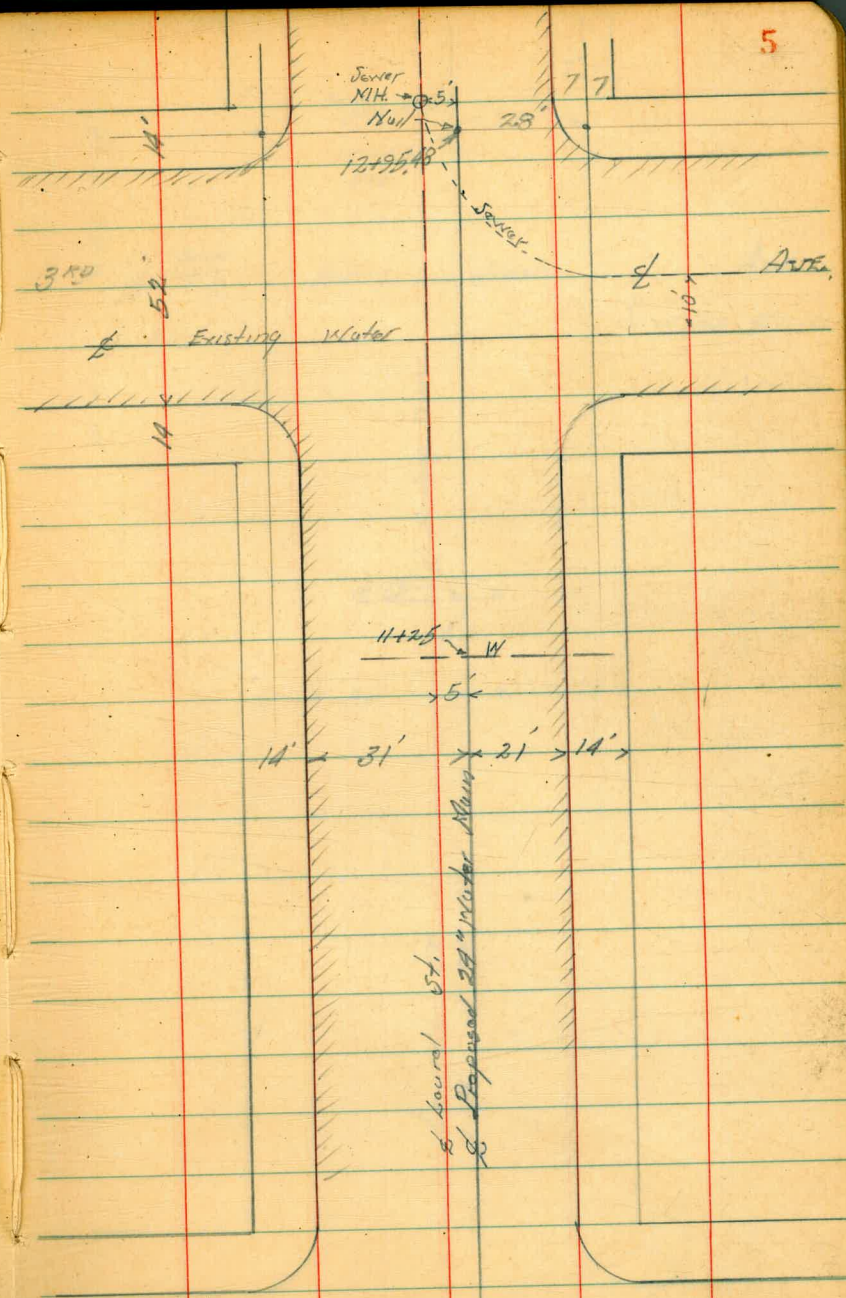 5
Sewer
M.H.
5'
7 7
Nail
28'
14'
12+95.43
Sewer
3RD
52'
℄
Ave.
10'
℄ Existing Water
14
11+25
W
5'
14' 31' 21' 14'
℄ Laurel St.
℄ Proposed 24" Water Main